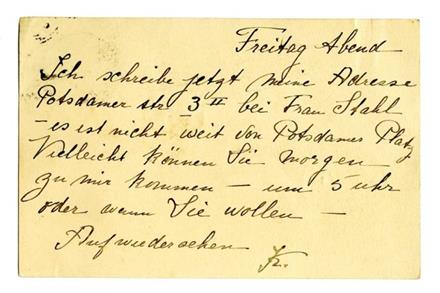 Freitag Abend
Ich schreibe jetzt meine Adresse
Potsdamer str. 3 II bei Frau Stahl
– es ist nicht weit von Potsdamer Platz
Vielleicht können Sie morgen
zu mir kommen – um 5 uhr
oder wann Sie wollen –
Auf wiedersehen